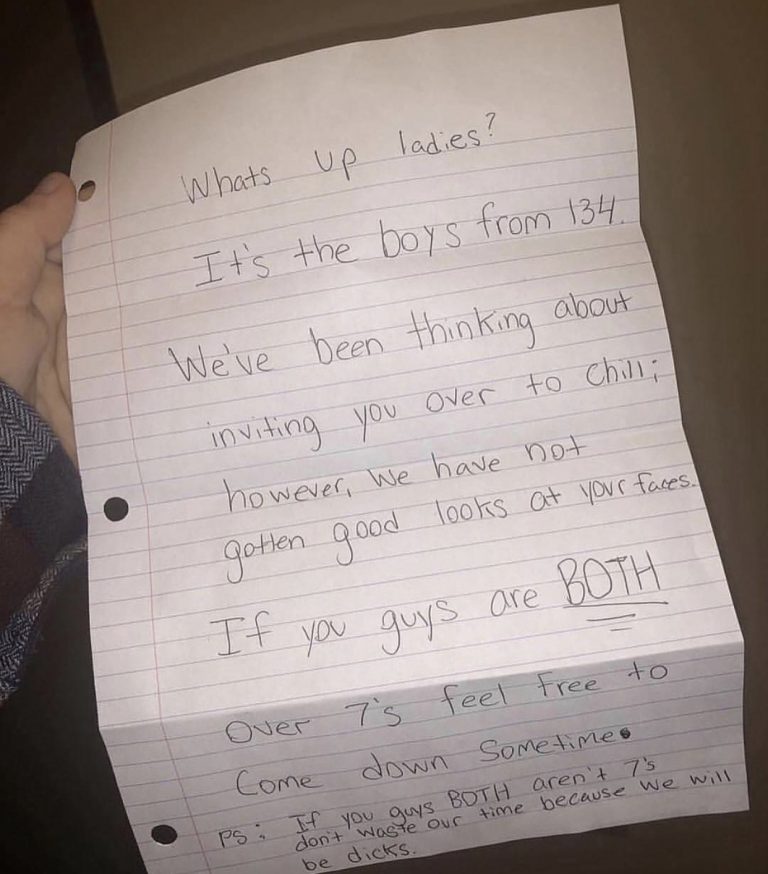 Whats up ladies?
It's the boys from 134.
We've been thinking about
inviting you over to chill;
however, we have not
gotten good looks at your faces.
If you guys are BOTH
over 7's feel free to
come down sometime.
PS: If you guys BOTH aren't 7's
don't waste our time because we will
be dicks.